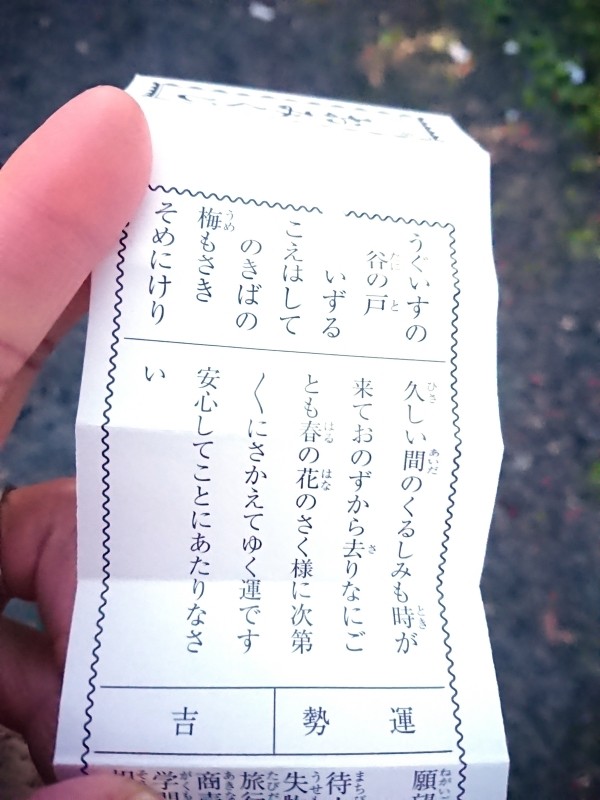 うぐいすの
谷の戸
いずる
こえはして
のきばの
梅もさき
そめにけり
久しい間のくるしみも時が
来ておのずから去りなにご
とも春の花のさく様に次第
〱にさかえてゆく運です
安心してことにあたりなさ
い
運勢
吉
願望
待
失物
旅行
商売
学問